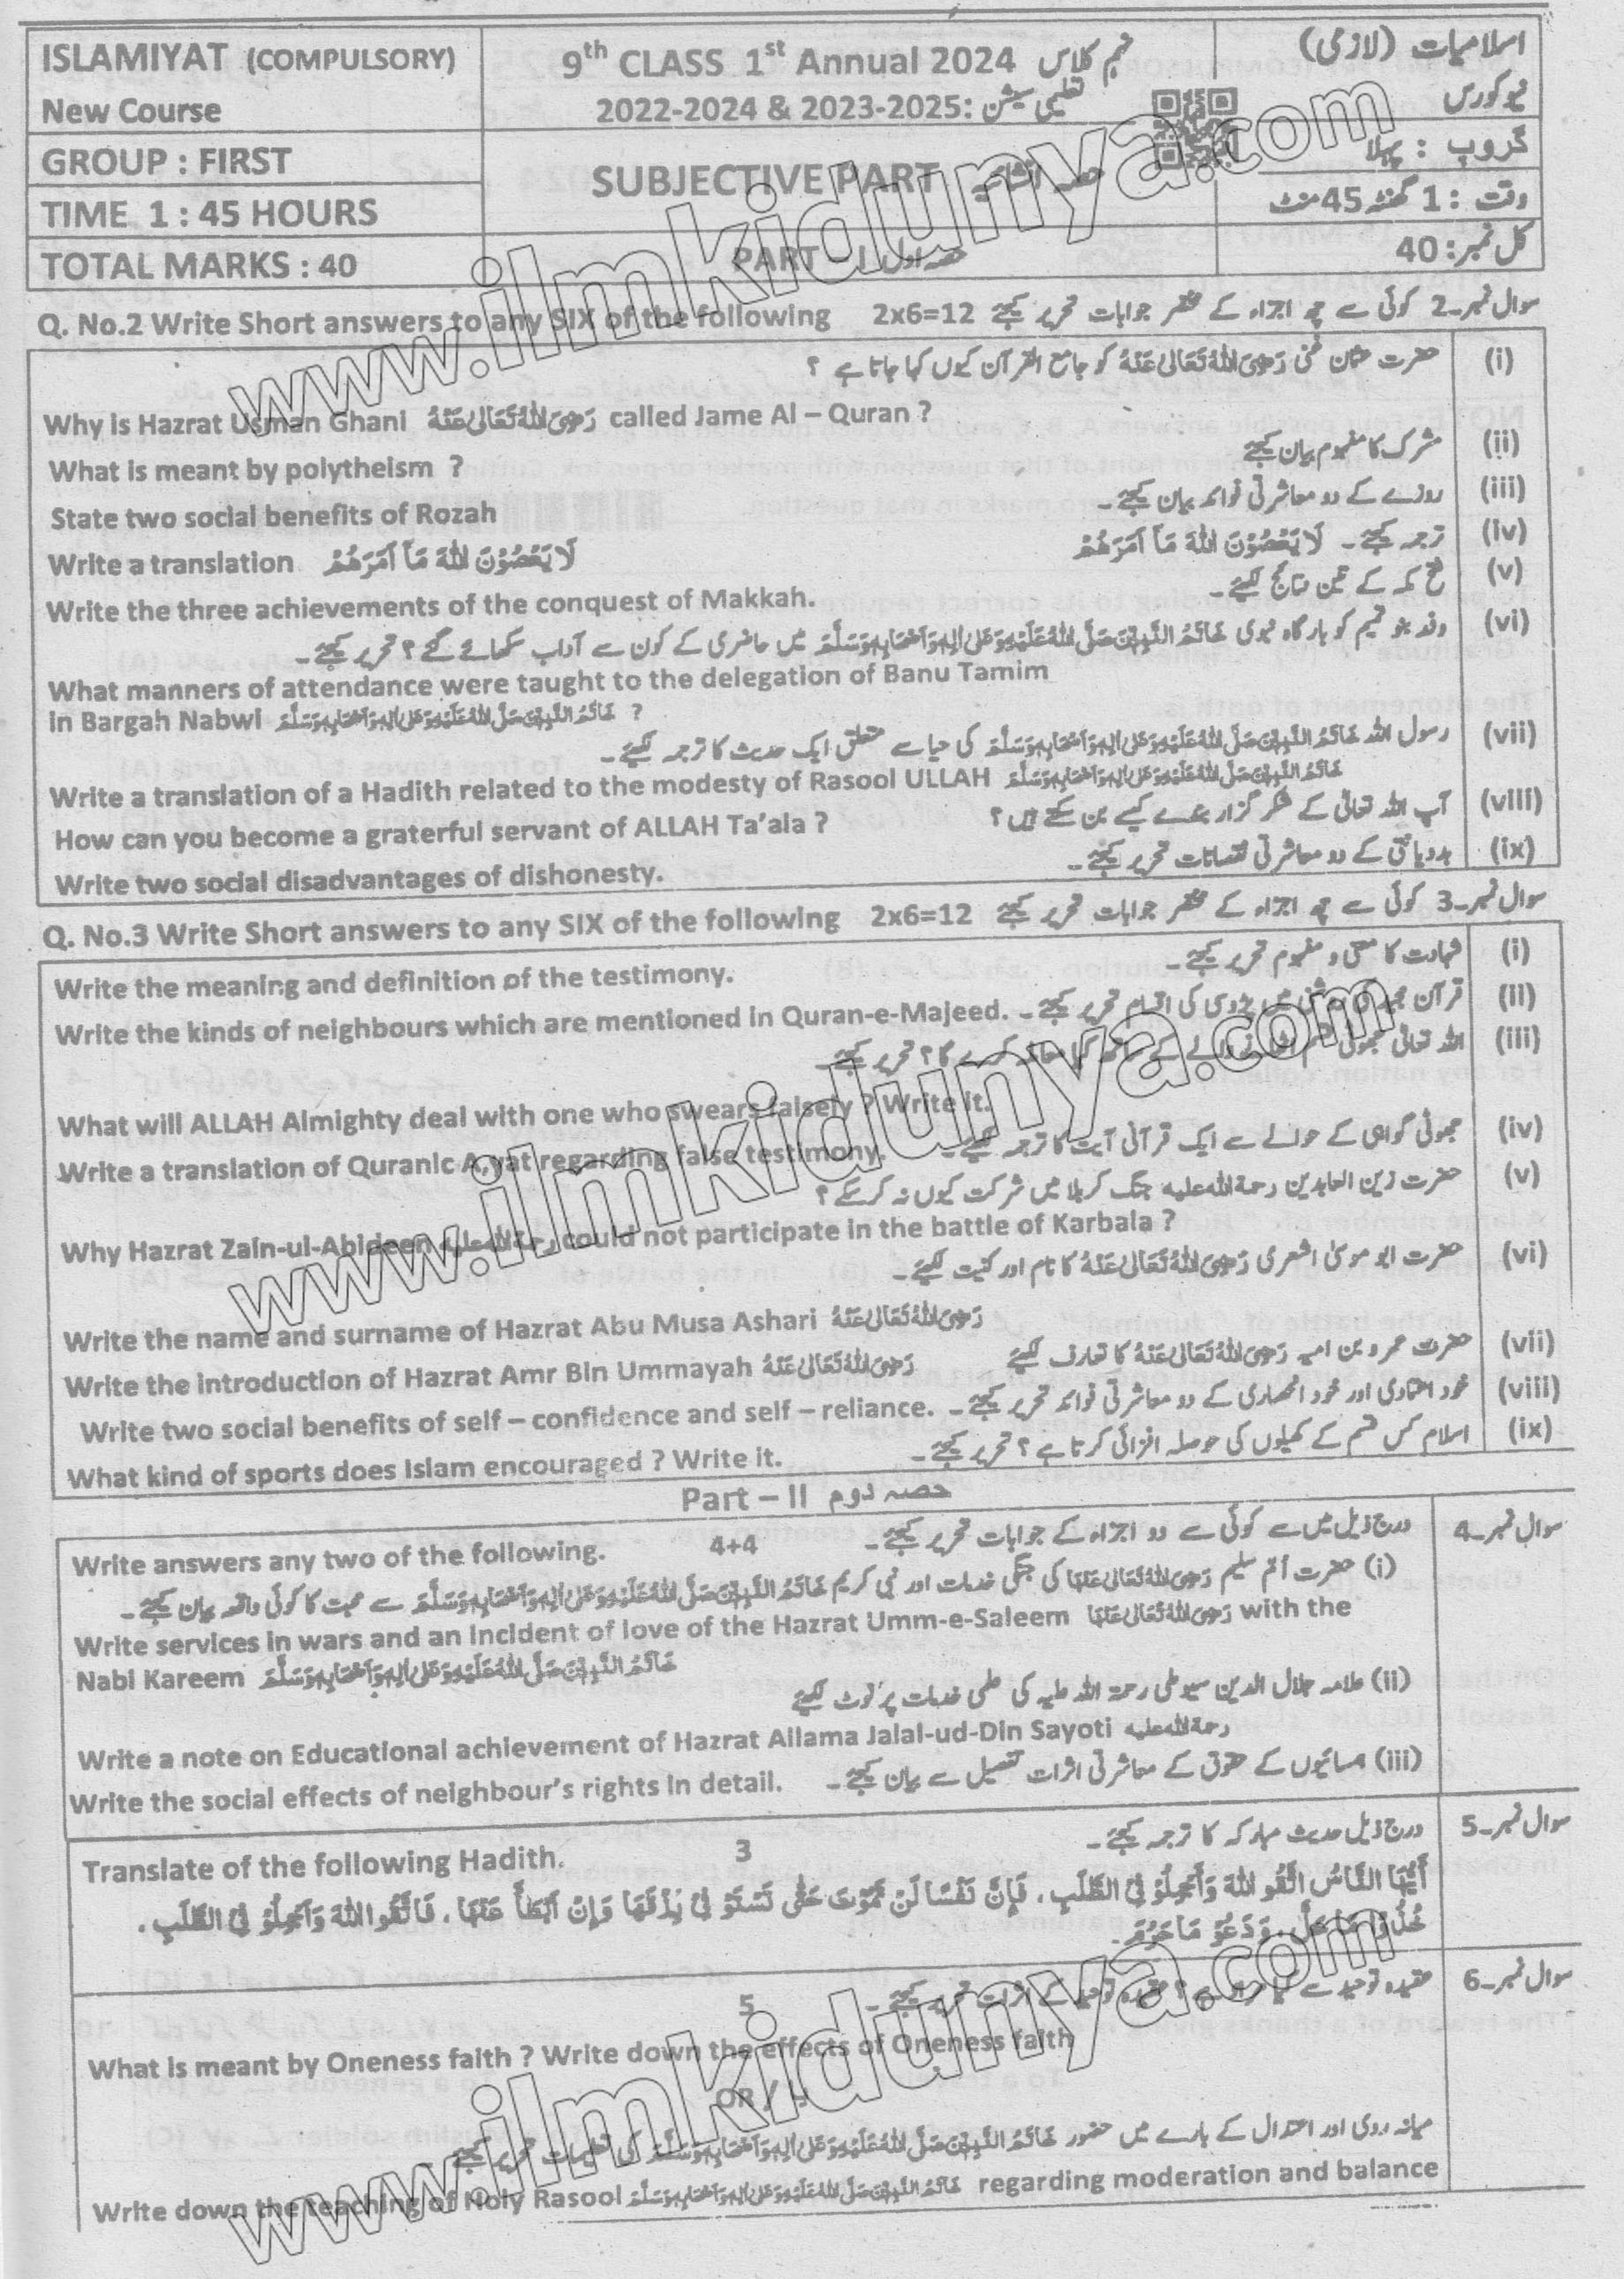 ISLAMIYAT (COMPULSORY)
New Course
GROUP : FIRST
TIME 1 : 45 HOURS
TOTAL MARKS : 40
9th CLASS 1st Annual 2024 نہم کلاس
2022-2024 & 2023-2025: تعلیمی سیشن
SUBJECTIVE PART حصہ انشائیہ
PART - I حصہ اول
اسلامیات (لازمی)
نیو کورس
گروپ : پہلا
وقت : 1 گھنٹہ 45 منٹ
کل نمبر: 40
Q. No.2 Write Short answers to any SIX of the following 2x6=12 سوال نمبر۔2 کوئی سے چھ اجزاء کے مختصر جوابات تحریر کیجئے
(i) حضرت عثمان غنی رَضِیَ اللّٰہُ تَعَالٰی عَنْہُ کو جامع القرآن کیوں کہا جاتا ہے ؟
Why is Hazrat Usman Ghani رَضِیَ اللّٰہُ تَعَالٰی عَنْہُ called Jame Al – Quran ?
What is meant by polytheism ? (ii) شرک کا مفہوم بیان کیجئے
State two social benefits of Rozah (iii) روزے کے دو معاشرتی فوائد بیان کیجئے۔
Write a translation لَا يَعْصُوْنَ اللّٰهَ مَآ اَمَرَهُمْ (iv) ترجمہ کیجئے۔ لَا يَعْصُوْنَ اللّٰهَ مَآ اَمَرَهُمْ
Write the three achievements of the conquest of Makkah. (v) فتح مکہ کے تین نتائج لکھیے۔
(vi) وفد بنو تمیم کو بارگاہ نبوی خَاتَمُ النَّبِیّٖنَ صَلَّی اللّٰہُ عَلَیْہِ وَعَلٰی اٰلِہٖ وَاَصْحَابِہٖ وَسَلَّمَ میں حاضری کے کون سے آداب سکھائے گئے ؟ تحریر کیجئے۔
What manners of attendance were taught to the delegation of Banu Tamim
in Bargah Nabwi خَاتَمُ النَّبِیّٖنَ صَلَّی اللّٰہُ عَلَیْہِ وَعَلٰی اٰلِہٖ وَاَصْحَابِہٖ وَسَلَّمَ ?
(vii) رسول اللہ خَاتَمُ النَّبِیّٖنَ صَلَّی اللّٰہُ عَلَیْہِ وَعَلٰی اٰلِہٖ وَاَصْحَابِہٖ وَسَلَّمَ کی حیا سے متعلق ایک حدیث کا ترجمہ لکھیے۔
Write a translation of a Hadith related to the modesty of Rasool ULLAH خَاتَمُ النَّبِیّٖنَ صَلَّی اللّٰہُ عَلَیْہِ وَعَلٰی اٰلِہٖ وَاَصْحَابِہٖ وَسَلَّمَ
How can you become a graterful servant of ALLAH Ta'ala ? (viii) آپ اللہ تعالٰی کے شکر گزار بندے کیسے بن سکتے ہیں ؟
Write two social disadvantages of dishonesty. (ix) بددیانتی کے دو معاشرتی نقصانات تحریر کیجئے۔
Q. No.3 Write Short answers to any SIX of the following 2x6=12 سوال نمبر۔3 کوئی سے چھ اجزاء کے مختصر جوابات تحریر کیجئے
Write the meaning and definition of the testimony. (i) شہادت کا معنی و مفہوم تحریر کیجئے۔
Write the kinds of neighbours which are mentioned in Quran-e-Majeed. (ii) قرآن مجید کی روشنی میں پڑوسی کی اقسام تحریر کیجئے۔
(iii) اللہ تعالٰی جھوٹی قسم کے ساتھ کیا معاملہ کرے گا ؟ تحریر کیجئے۔
What will ALLAH Almighty deal with one who swears falsely ? Write it.
Write a translation of Quranic Ayat regarding false testimony. (iv) جھوٹی گواہی کے حوالے سے ایک قرآنی آیت کا ترجمہ لکھیے۔
(v) حضرت زین العابدین رحمۃ اللہ علیہ جنگ کربلا میں شرکت کیوں نہ کر سکے ؟
Why Hazrat Zain-ul-Abideen رحمۃ اللہ علیہ could not participate in the battle of Karbala ?
(vi) حضرت ابو موسیٰ اشعری رَضِیَ اللّٰہُ تَعَالٰی عَنْہُ کا نام اور کنیت لکھیے۔
Write the name and surname of Hazrat Abu Musa Ashari رَضِیَ اللّٰہُ تَعَالٰی عَنْہُ
Write the introduction of Hazrat Amr Bin Ummayah رَضِیَ اللّٰہُ تَعَالٰی عَنْہُ (vii) حضرت عمرو بن امیہ رَضِیَ اللّٰہُ تَعَالٰی عَنْہُ کا تعارف لکھیئے
Write two social benefits of self – confidence and self – reliance. (viii) خود اعتمادی اور خود انحصاری کے دو معاشرتی فوائد تحریر کیجئے۔
What kind of sports does Islam encouraged ? Write it. (ix) اسلام کس قسم کے کھیلوں کی حوصلہ افزائی کرتا ہے ؟ تحریر کیجئے۔
Part – II حصہ دوم
Write answers any two of the following. 4+4 درج ذیل میں سے کوئی سے دو اجزاء کے جوابات تحریر کیجئے۔ سوال نمبر۔4
(i) حضرت اُمّ سلیم رَضِیَ اللّٰہُ تَعَالٰی عَنْہَا کی جنگی خدمات اور نبی کریم خَاتَمُ النَّبِیّٖنَ صَلَّی اللّٰہُ عَلَیْہِ وَعَلٰی اٰلِہٖ وَاَصْحَابِہٖ وَسَلَّمَ سے محبت کا کوئی واقعہ بیان کیجئے۔
Write services in wars and an incident of love of the Hazrat Umm-e-Saleem رَضِیَ اللّٰہُ تَعَالٰی عَنْہَا with the
Nabi Kareem خَاتَمُ النَّبِیّٖنَ صَلَّی اللّٰہُ عَلَیْہِ وَعَلٰی اٰلِہٖ وَاَصْحَابِہٖ وَسَلَّمَ
(ii) علامہ جلال الدین سیوطی رحمۃ اللہ علیہ کی علمی خدمات پر نوٹ لکھیئے
Write a note on Educational achievement of Hazrat Allama Jalal-ud-Din Sayoti رحمۃ اللہ علیہ
Write the social effects of neighbour's rights in detail. (iii) ہمسائیوں کے حقوق کے معاشرتی اثرات تفصیل سے بیان کیجئے۔
Translate of the following Hadith. 3 درج ذیل حدیث مبارکہ کا ترجمہ کیجئے۔ سوال نمبر۔5
أَيُّهَا النَّاسُ اتَّقُو اللّٰهَ وَأَجْمِلُوْ فِي الطَّلَبِ ، فَإِنَّ نَفْسًا لَنْ تَمُوْتَ حَتّٰى تَسْتَوْ فِيْ رِزْقَهَا وَإِنْ أَبْطَأَ عَنْهَا ، فَاتَّقُوا اللّٰهَ وَأَجْمِلُوْ فِي الطَّلَبِ ،
خُذُوْا مَا حَلَّ، وَدَعُوْ مَا حَرُمَ۔
عقیدہ توحید سے کیا مراد ہے ؟ عقیدہ توحید کے اثرات تحریر کیجئے۔ سوال نمبر۔6
5
What is meant by Oneness faith ? Write down the effects of Oneness faith
OR / یا
میانہ روی اور اعتدال کے بارے میں حضور خَاتَمُ النَّبِیّٖنَ صَلَّی اللّٰہُ عَلَیْہِ وَعَلٰی اٰلِہٖ وَاَصْحَابِہٖ وَسَلَّمَ کی تعلیمات تحریر کیجئے
Write down the teaching of Holy Rasool خَاتَمُ النَّبِیّٖنَ صَلَّی اللّٰہُ عَلَیْہِ وَعَلٰی اٰلِہٖ وَاَصْحَابِہٖ وَسَلَّمَ regarding moderation and balance
www.ilmkidunya.com
www.ilmkidunya.com
www.ilmkidunya.com